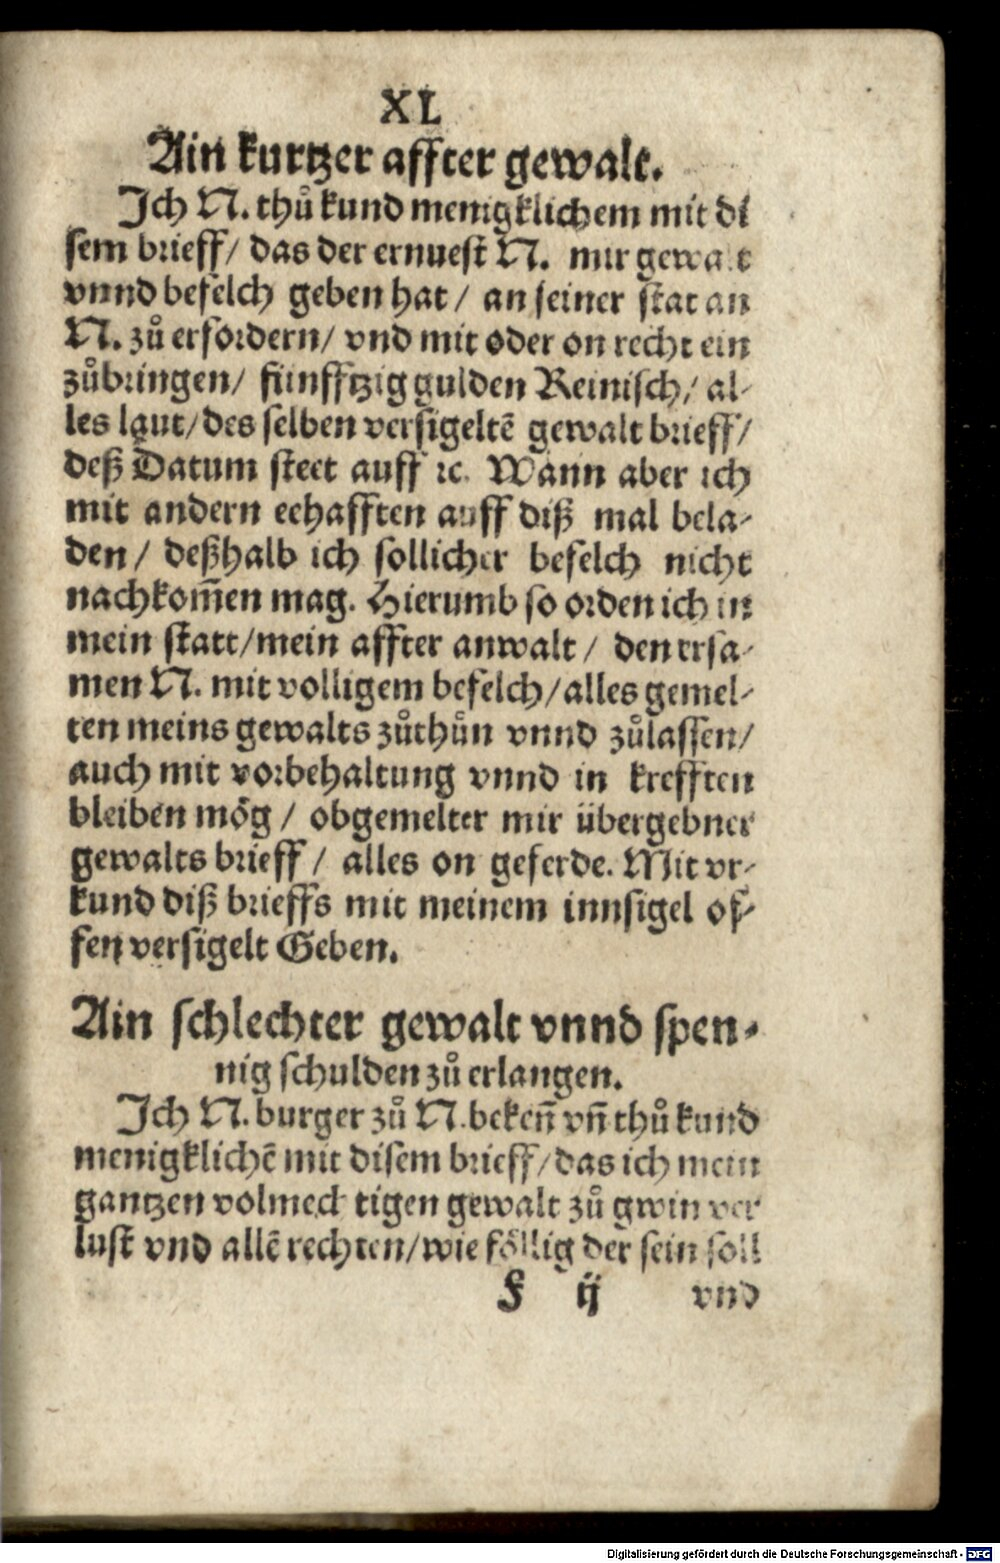 XL
Ain kurtzer affter gewalt.
Ich N. thuͦ kund menigklichem mit di
sem brieff/ das der ernuest N. mir gewalt
vnnd befelch geben hat / an seiner stat an
N. zuͦ erfordern/ vnd mit oder on recht ein
zuͦbringen/ fünfftzig gulden Reinisch/ al⸗
les laut/des selben versigeltẽ gewalt brieff/
deß Datum steet auff ꝛc. Wann aber ich
mit andern eehafften auff diß mal bela⸗
den / deßhalb ich sollicher befelch nicht
nachkom̃en mag. Hierumb so orden ich in
mein statt/mein affter anwalt / den ersa⸗
men N. mit volligem befelch/alles gemel⸗
ten meins gewalts zuͦthuͦn vnnd zuͦlassen/
auch mit vorbehaltung vnnd in krefften
bleiben moͤg / obgemelter mir übergebner
gewalts brieff / alles on geferde. Mit vr⸗
kund diß brieffs mit meinem innsigel of⸗
fen versigelt Geben.
Ain schlechter gewalt vnnd spen⸗
nig schulden zuͦ erlangen.
Ich N. burger zuͦ N. beken̄ vn̄ thuͦ kund
menigklichẽ mit disem brieff/das ich mein
gantzen volmech tigen gewalt zuͦ gwin ver
lust vnd allẽ rechten/wie foͤllig der sein soll
F ij vnd
Digitalisierung gefördert durch die Deutsche Forschungsgemeinschaft - DFG